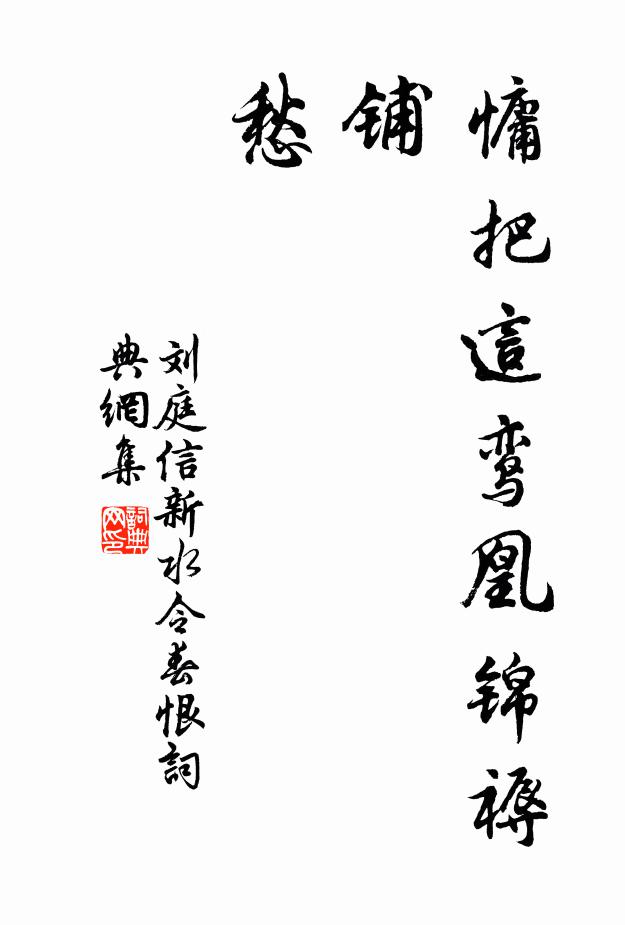 慵把這鸾凰锦褥
铺
愁
刘庭信新水令春恨詞
典網集
詞典网印